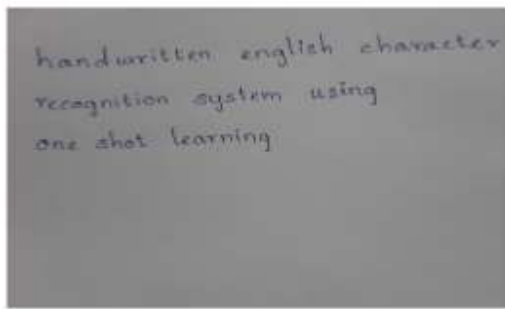 handwritten english character
recognition system using
one shot learning